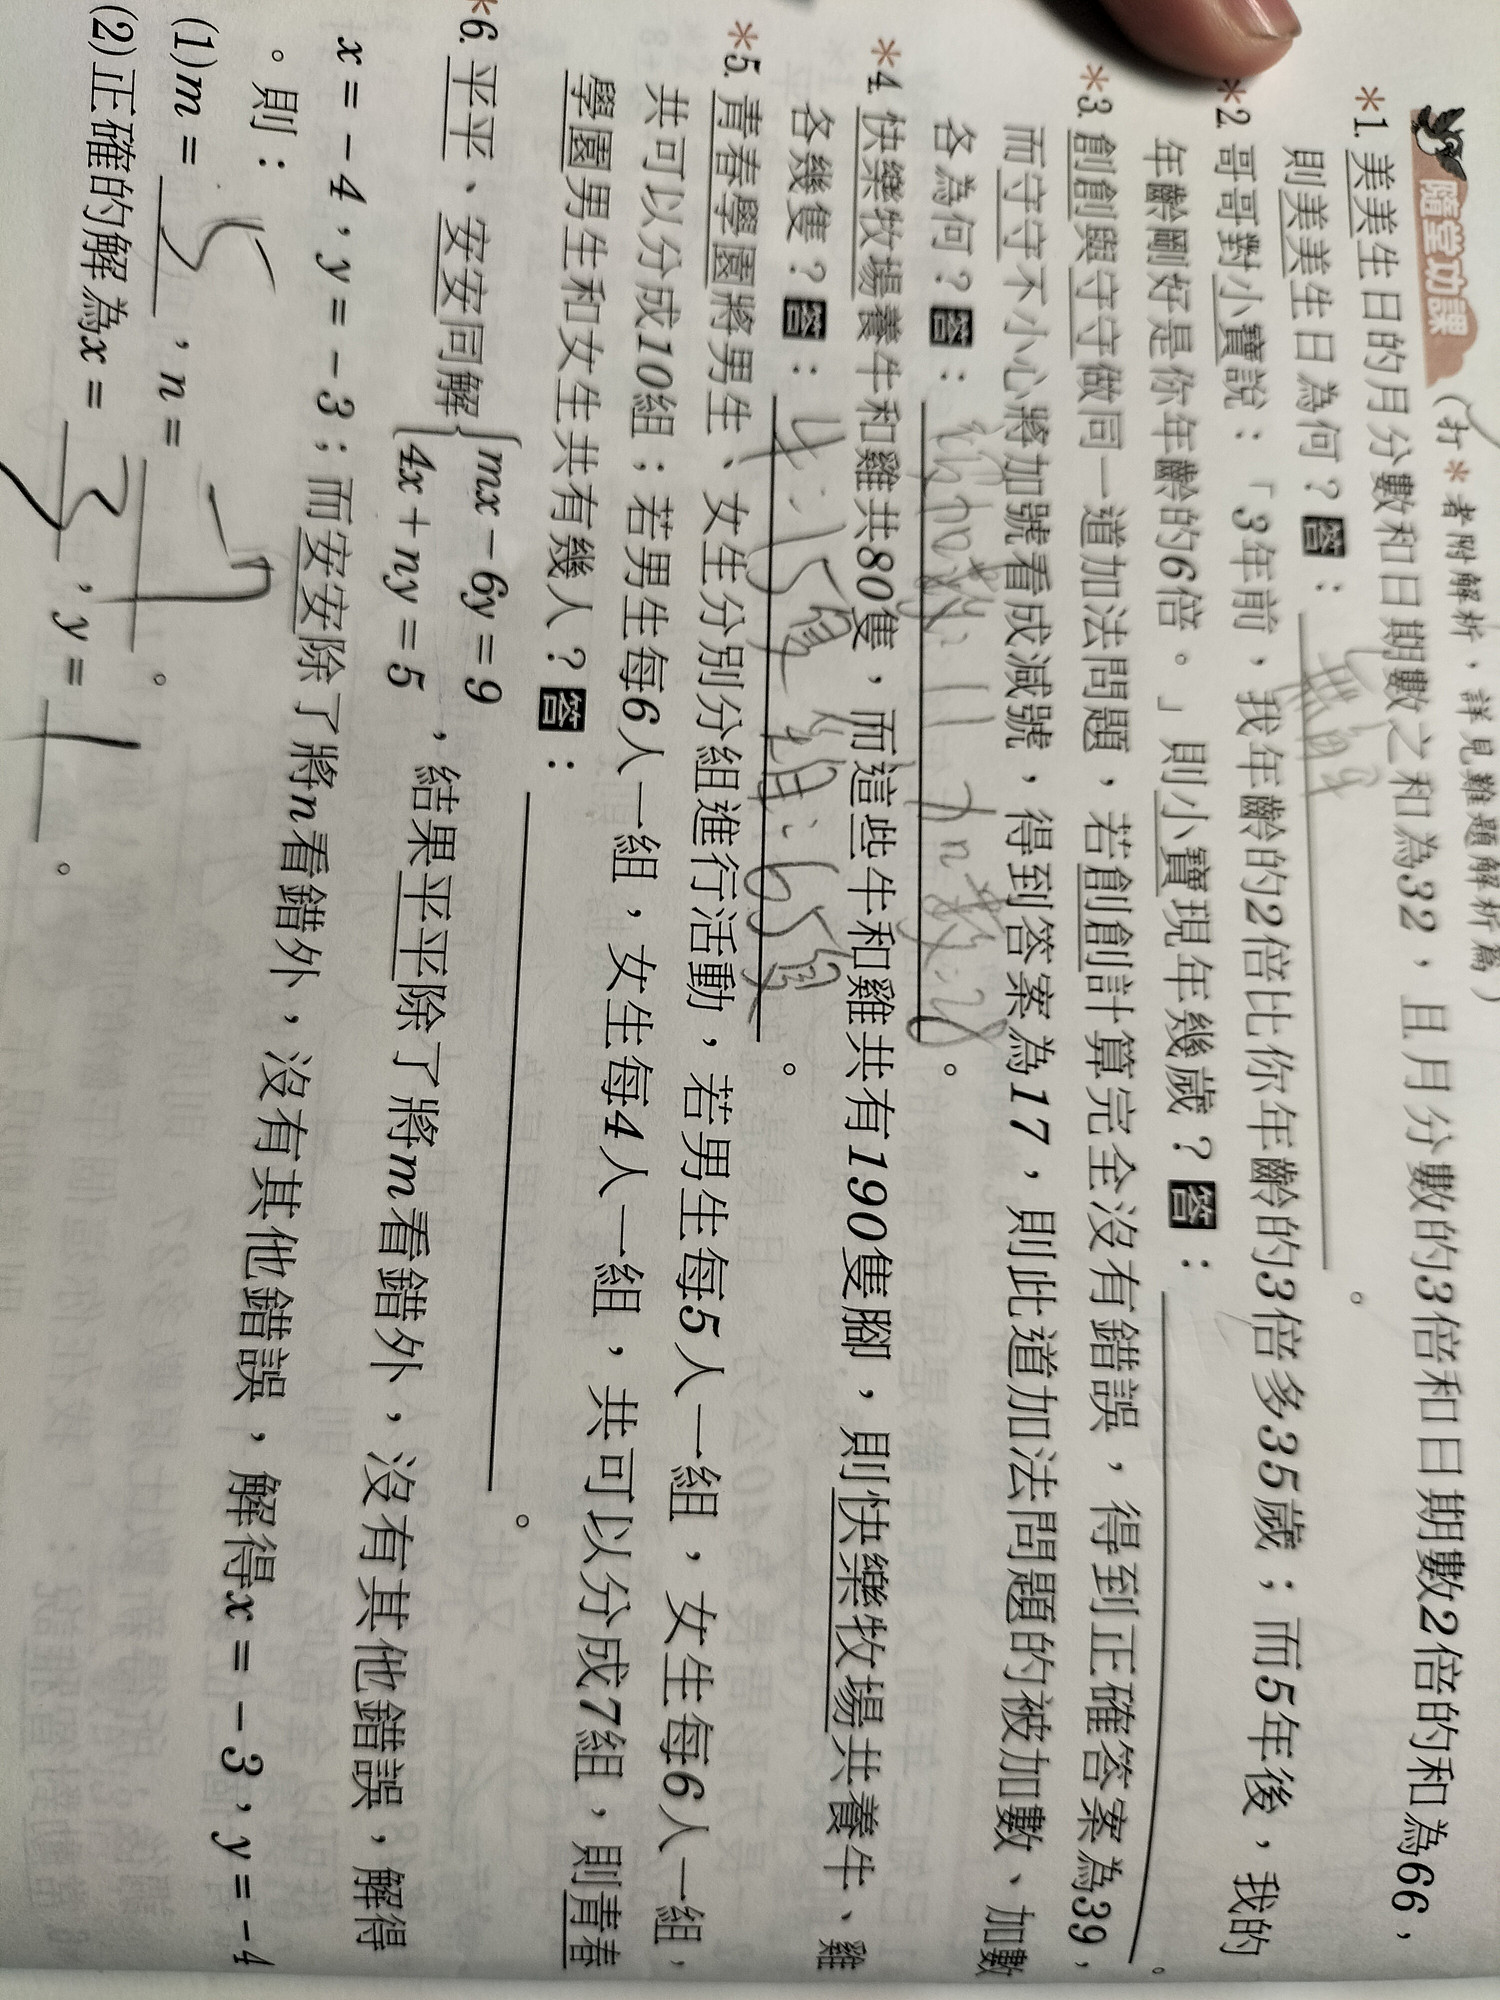 隨堂功課 (打*者附解析,詳見難題解析篇)
*1. 美美生日的月分數和日期數之和為32,且月分數的3倍和日期數2倍的和為66,
則美美生日為何?答:無解。
*2. 哥哥對小寶說:「3年前,我年齡的2倍比你年齡的3倍多35歲;而5年後,我的
年齡剛好是你年齡的6倍。」則小寶現年幾歲?答: 。
*3. 創創與守守做同一道加法問題,若創創計算完全沒有錯誤,得到正確答案為39,
而守守不小心將加號看成減號,得到答案為17,則此道加法問題的被加數、加數
各為何?答: 。
*4. 快樂牧場養牛和雞共80隻,而這些牛和雞共有190隻腳,則快樂牧場共養牛、雞
各幾隻?答:牛:15隻 雞:65隻。
*5. 青春學園將男生、女生分別分組進行活動,若男生每5人一組,女生每6人一組,
共可以分成10組;若男生每6人一組,女生每4人一組,共可以分成7組,則青春
學園男生和女生共有幾人?答: 。
*6. 平平、安安同解{mx-6y=9
4x+ny=5,結果平平除了將m看錯外,沒有其他錯誤,解得
x=-4,y=-3;而安安除了將n看錯外,沒有其他錯誤,解得x=-3,y=-4
。則:
(1)m=5,n=-7。
(2)正確的解為x=3,y=1。